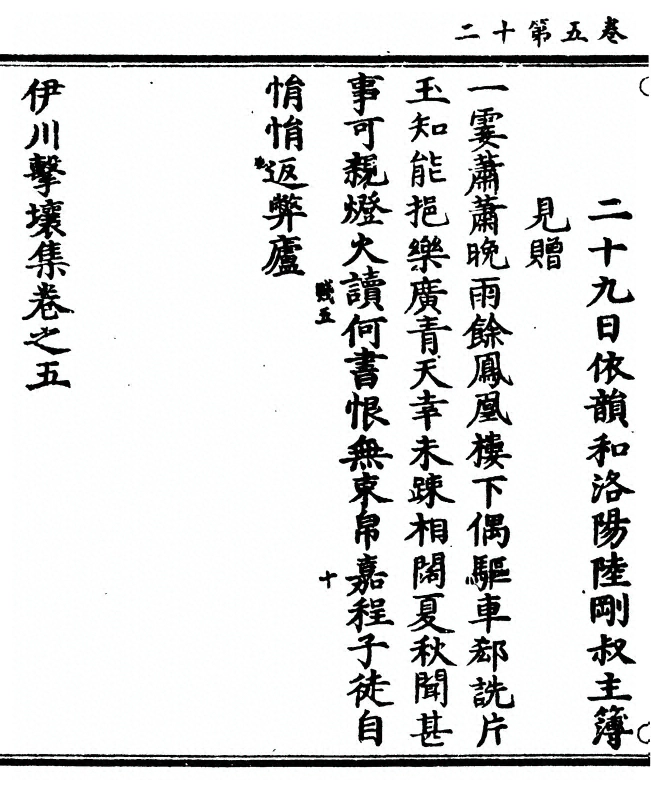 卷五第十二
二十九日依韻和洛陽陸剛叔主簿
見贈
一霎蕭蕭晚雨餘鳳凰樓下偶驅車郄詵片
玉知能挹樂廣青天幸未踈相闊夏秋聞甚
事可親燈火讀何書恨無束帛嘉程子徒自
悁悁返弊廬
伊川擊壤集卷之五
賤五
十